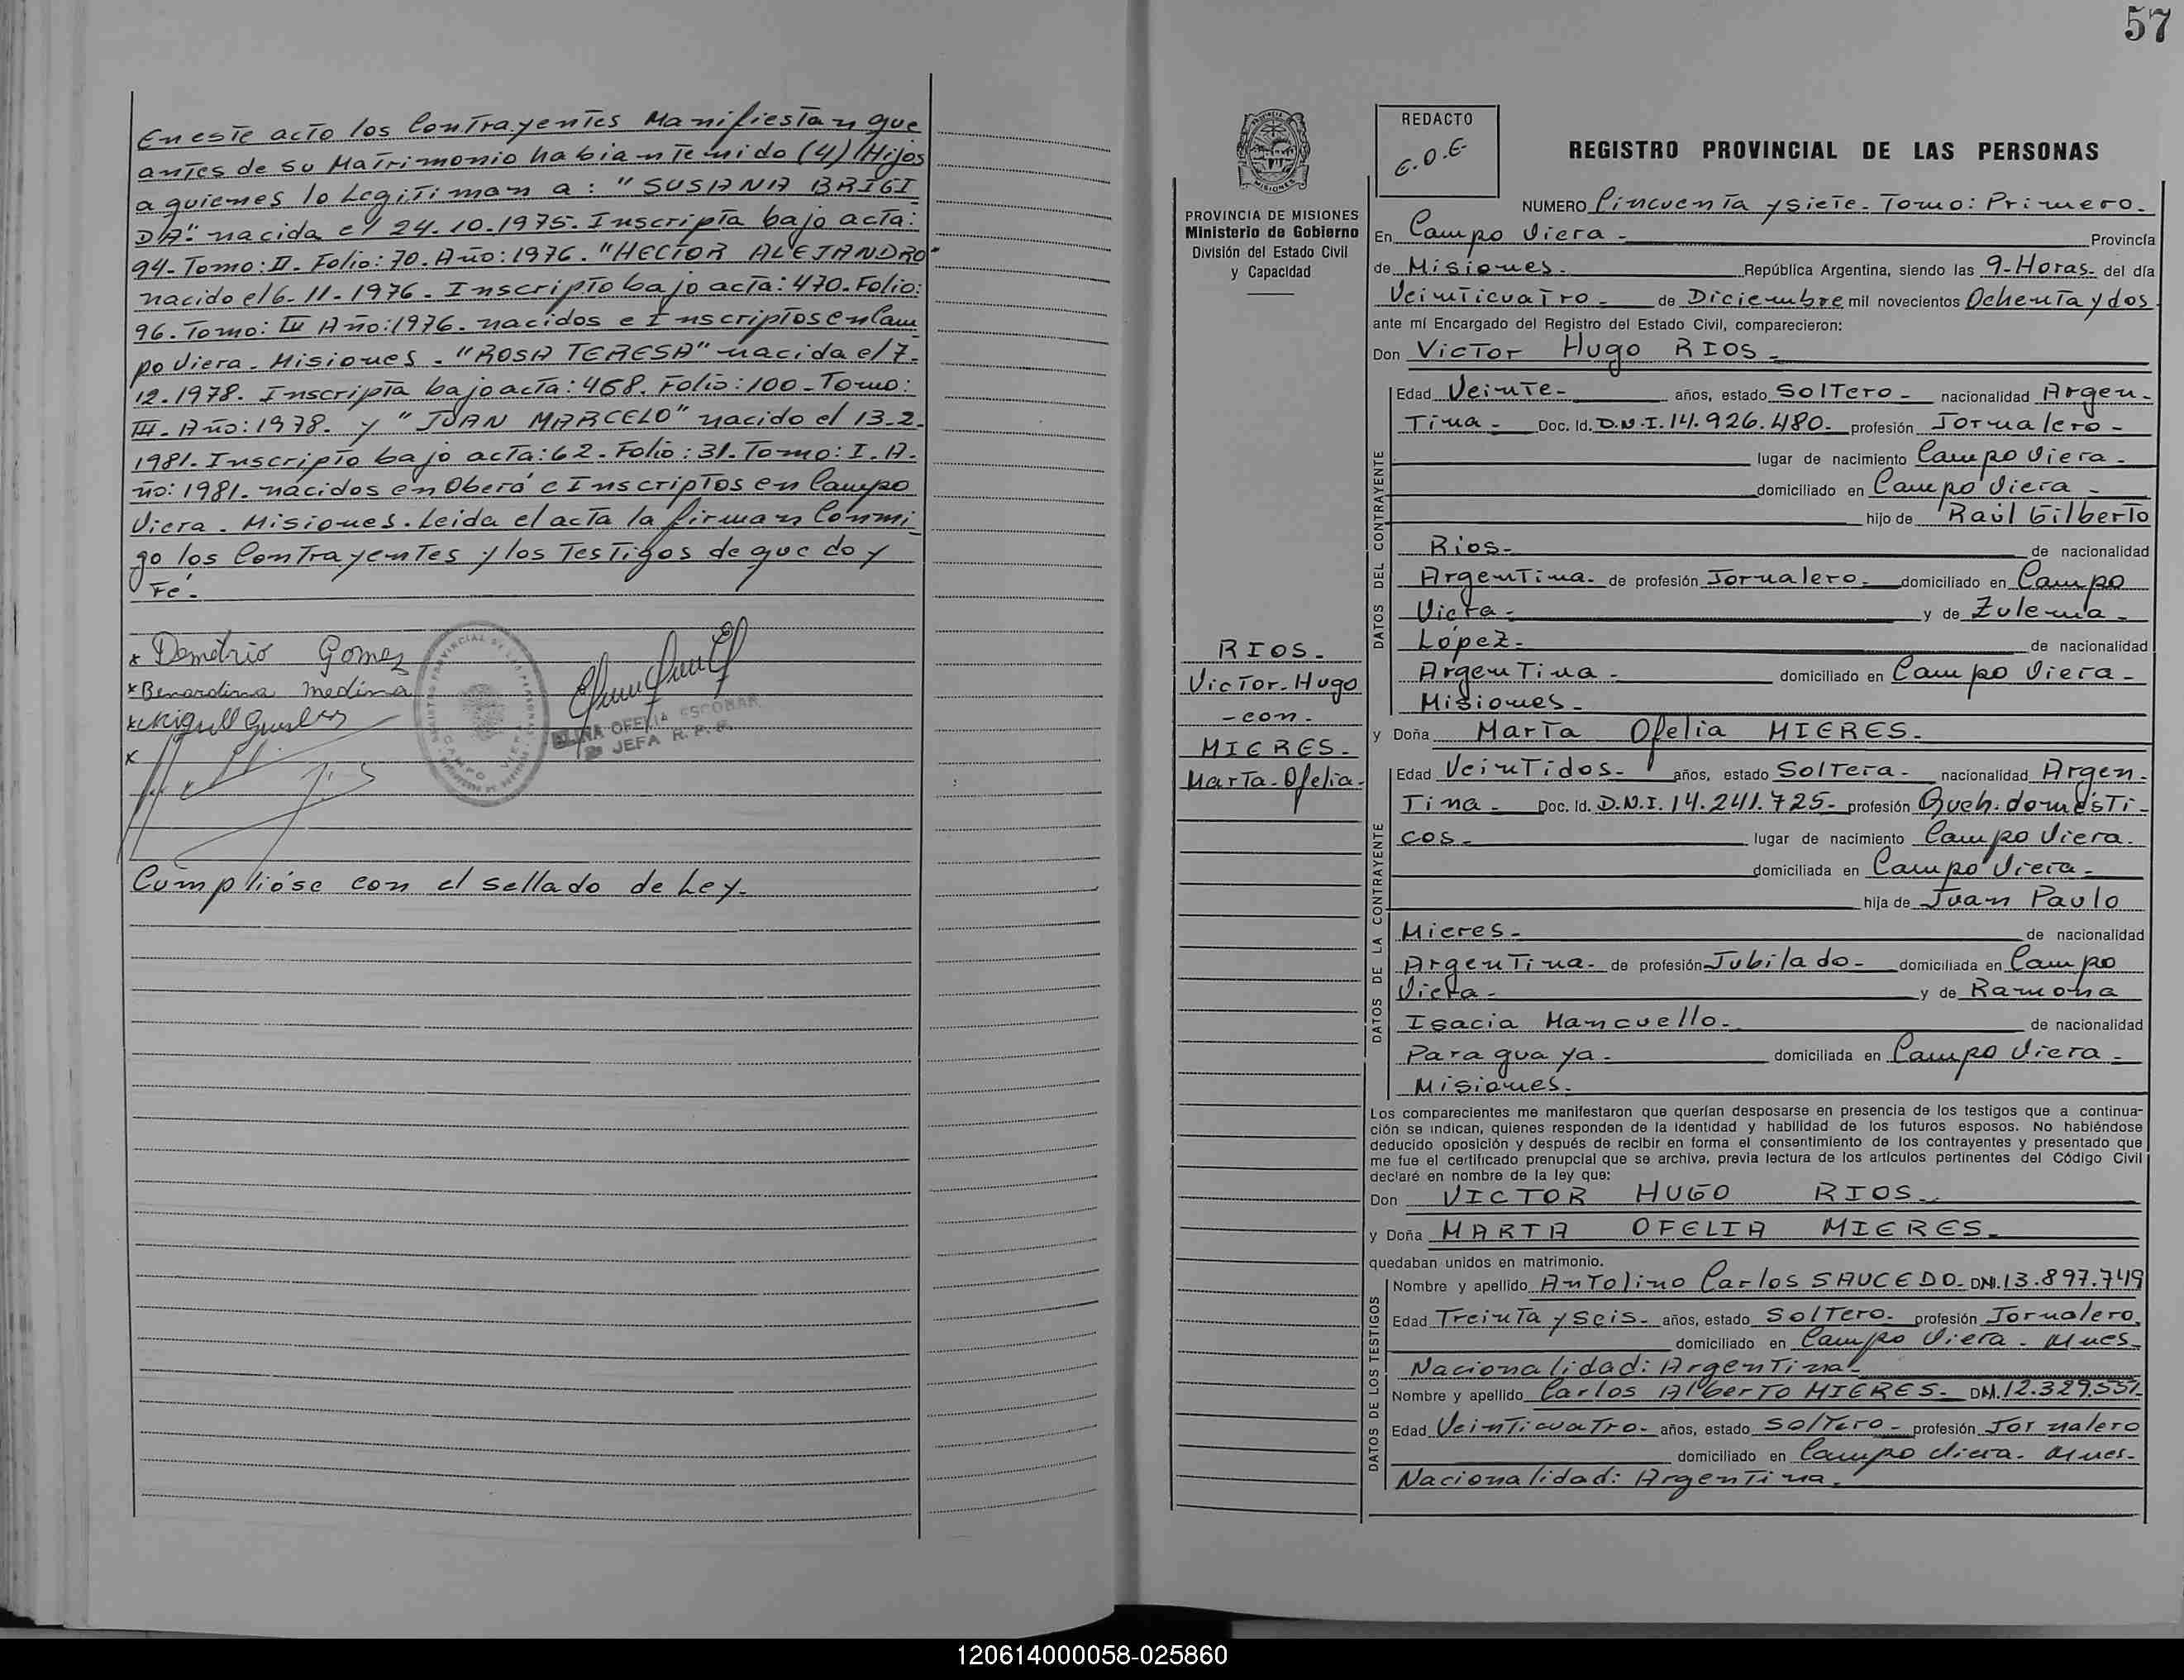 En este acto los Contrayentes Manifiestan que
antes de su Matrimonio habian tenido (4) Hijos
a quienes lo Legitiman a: "SUSANA BRIGI
DA" nacida el 24.10.1975. Inscripta bajo acta:
94- Tomo: II. Folio: 70. Año: 1976. "HECTOR ALEJANDRO"
nacido el 6-11-1976. Inscripto bajo acta: 470. Folio:
96. Tomo: III Año: 1976. nacidos e Inscriptos en Cam
po Viera. Misiones. "ROSA TERESA" nacida el 7-
12.1978. Inscripta bajo acta: 468. Folio: 100- Tomo:
III. Año: 1978. y "JUAN MARCELO" nacido el 13-2-
1981. Inscripto bajo acta: 62. Folio: 31. Tomo: I. A-
ño: 1981. nacidos en Oberá e Inscriptos en Campo
Viera. Misiones. Leida el acta la firman Conmi
go los Contrayentes y los Testigos de que doy
Fé.
x Demetrio Gomez
x Benardina medina
x
x
ELINA OFELIA ESCOBAR
JEFA R. P. P.
Cumplióse con el sellado de Ley.
57
REDACTO
E.O.E.
MISIONES
PROVINCIA DE MISIONES
Ministerio de Gobierno
División del Estado Civil
y Capacidad
RIOS.
Victor-Hugo
-con-
MIERES-
Marta-Ofelia-
REGISTRO PROVINCIAL DE LAS PERSONAS
NUMERO Cincuenta y siete- Tomo: Primero.
En Campo Viera - Provincia
de Misiones. República Argentina, siendo las 9-Horas- del día
Veinticuatro- de Diciembre mil novecientos Ochenta y dos.
ante mí Encargado del Registro del Estado Civil, comparecieron:
Don Victor Hugo RIOS-
DATOS DEL CONTRAYENTE
Edad Veinte- años, estado Soltero- nacionalidad Argen-
tina- Doc. Id. D.N.I. 14.926.480- profesión Jornalero-
lugar de nacimiento Campo Viera-
domiciliado en Campo Viera-
hijo de Raúl Gilberto
Rios- de nacionalidad
Argentina- de profesión Jornalero- domiciliado en Campo
Viera- y de Zulema-
López- de nacionalidad
Argentina- domiciliado en Campo Viera-
Misiones-
y Doña Marta Ofelia MIERES-
DATOS DE LA CONTRAYENTE
Edad Veintidos- años, estado Soltera- nacionalidad Argen-
tina- Doc. Id. D.N.I. 14.241.725- profesión Queh. domésti-
cos- lugar de nacimiento Campo Viera.
domiciliada en Campo Viera-
hija de Juan Paulo
Mieres- de nacionalidad
Argentina- de profesión Jubilado- domiciliada en Campo
Viera- y de Ramona
Isacia Mancuello- de nacionalidad
Paraguaya- domiciliada en Campo Viera-
Misiones.
Los comparecientes me manifestaron que querían desposarse en presencia de los testigos que a continua-
ción se indican, quienes responden de la identidad y habilidad de los futuros esposos. No habiéndose
deducido oposición y después de recibir en forma el consentimiento de los contrayentes y presentado que
me fue el certificado prenupcial que se archiva, previa lectura de los artículos pertinentes del Código Civil
declaré en nombre de la ley que:
Don VICTOR HUGO RIOS-
y Doña MARTA OFELIA MIERES-
quedaban unidos en matrimonio.
DATOS DE LOS TESTIGOS
Nombre y apellido Antolino Carlos SAUCEDO- DNI. 13.897.749
Edad Treinta y Seis- años, estado Soltero- profesión Jornalero.
domiciliado en Campo Viera. Mnes-
Nacionalidad: Argentina-
Nombre y apellido Carlos Alberto MIERES- DNI. 12.329.551-
Edad Veinticuatro- años, estado Soltero- profesión Jornalero
domiciliado en Campo Viera. Mnes-
Nacionalidad: Argentina.
120614000058-025860